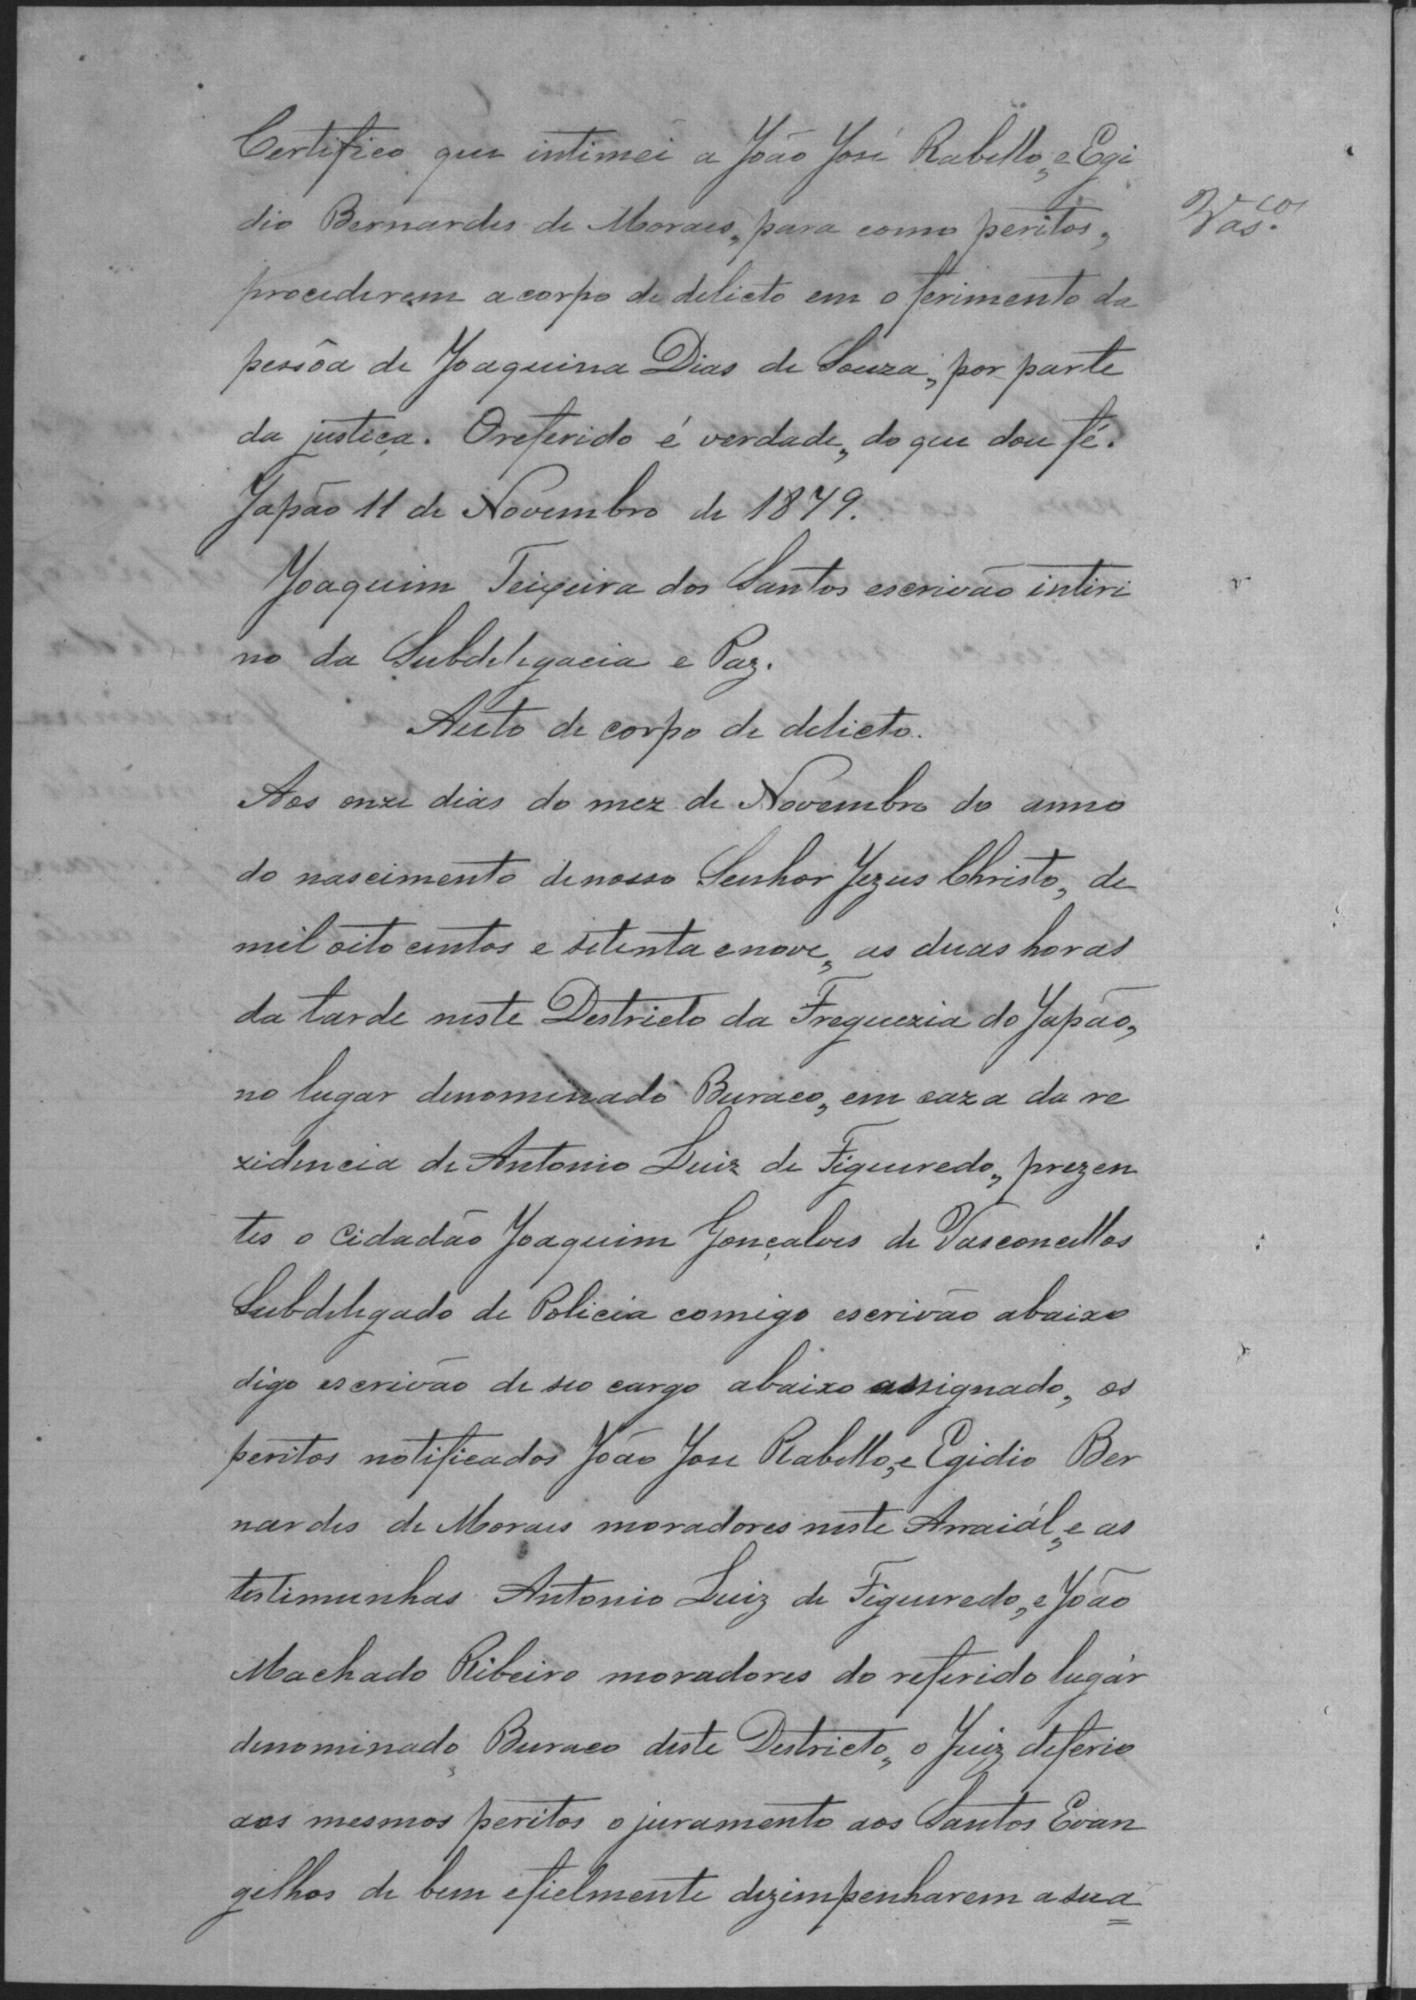 Certifico que intimei a João José Rabello, e Egi
dio Bernardes de Moraes, para como peritos,
procederem a corpo de delicto em o ferimento da
pessôa de Joaquina Dias de Souza, por parte
da justiça. O referido é verdade, do que dou fé.
Japão 11 de Novembro de 1879.
Joaquim Teixeira dos Santos escrivão intiri
no da Subdelegacia e Paz.
Auto de corpo de delicto.
Aos onze dias do mez de Novembro do anno
do nascimento de nosso Senhor Jezus Christo, de
mil oito centos e setenta e nove, as duas horas
da tarde neste Destricto da Freguezia do Japão,
no lugar denominado Buraco, em caza da re
zidencia de Antonio Luiz de Figueredo, prezen
tes o Cidadão Joaquim Gonçalves de Vasconcellos
Subdelegado de Policia comigo escrivão abaixo
digo escrivão de seo cargo abaixo assignado, os
peritos notificados João Jose Rabello, e Egidio Ber
nardes de Moraes moradores neste Arraiál, e as
testimunhas Antonio Luiz de Figueredo, e João
Machado Ribeiro moradores do referido lugár
denominado Buraco deste Destricto, o Juiz deferio
aos mesmos peritos o juramento aos Santos Evan
gelhos de bem e fielmente dezimpenharem a sua
Vas.cos